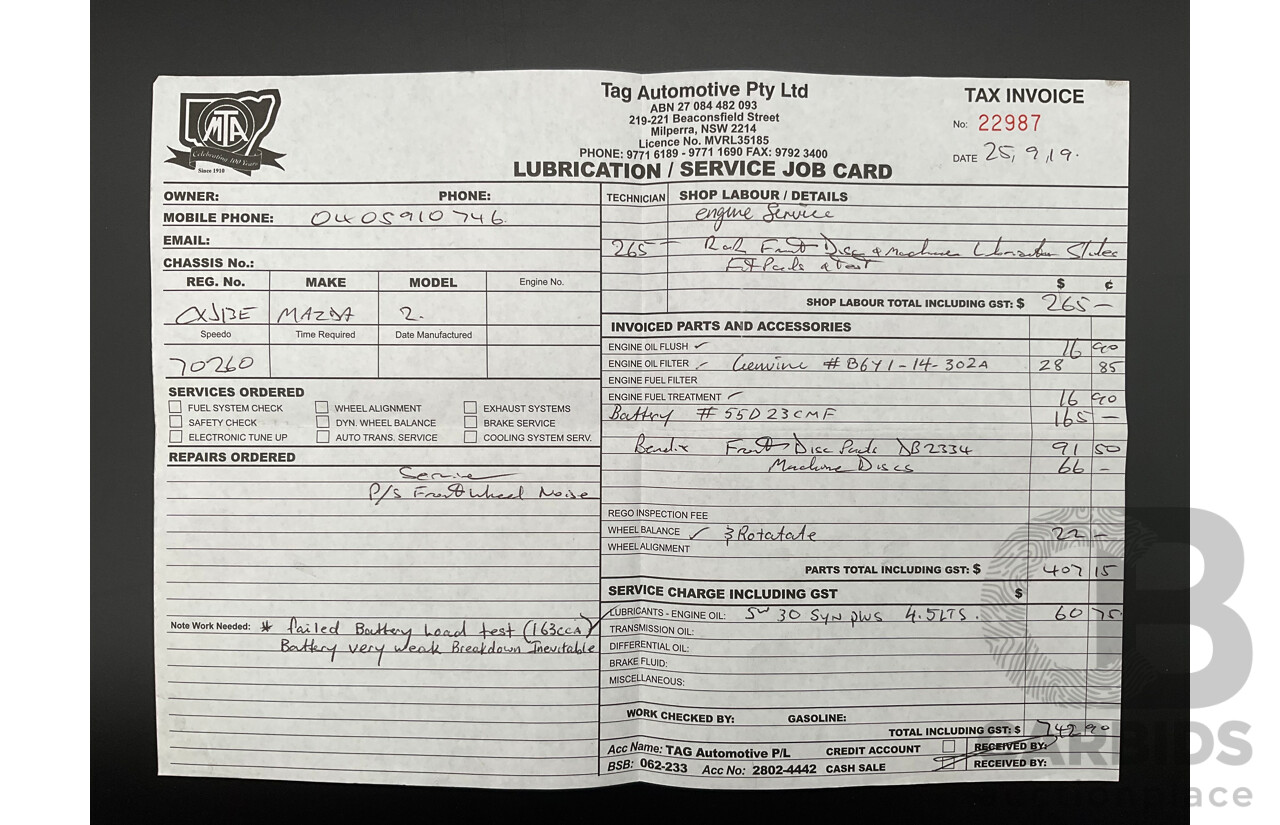 MTA
Celebrating 100 Years
Since 1910
Tag Automotive Pty Ltd
ABN 27 084 482 093
219-221 Beaconsfield Street
Milperra, NSW 2214
Licence No. MVRL35185
PHONE: 9771 6189 - 9771 1690 FAX: 9792 3400
LUBRICATION / SERVICE JOB CARD
TAX INVOICE
No: 22987
DATE 25, 9, 19.
OWNER: PHONE:
MOBILE PHONE: 0405910746
EMAIL:
CHASSIS No.:
REG. No. MAKE MODEL Engine No.
MAZDA 2.
Speedo Time Required Date Manufactured
70260
SERVICES ORDERED
FUEL SYSTEM CHECK WHEEL ALIGNMENT EXHAUST SYSTEMS
SAFETY CHECK DYN. WHEEL BALANCE BRAKE SERVICE
ELECTRONIC TUNE UP AUTO TRANS. SERVICE COOLING SYSTEM SERV.
REPAIRS ORDERED
Service
P/S Front Wheel Noise
Note Work Needed: * failed Battery Load test (163cca)
Battery very weak Breakdown Inevitable
TECHNICIAN SHOP LABOUR / DETAILS
engine Service
265 - R&R Front Disc & Machine Slides
Fit Pads & Test
$ ¢
SHOP LABOUR TOTAL INCLUDING GST: $ 265 -
INVOICED PARTS AND ACCESSORIES
ENGINE OIL FLUSH ✓ 16 90
ENGINE OIL FILTER ✓ Genuine # B6Y1-14-302A 28 85
ENGINE FUEL FILTER
ENGINE FUEL TREATMENT ✓ 16 90
Battery # 55D23CMF 165 -
Bendix Front Disc Pads DB2334 91 50
Machine Discs 66 -
REGO INSPECTION FEE
WHEEL BALANCE ✓ & Rotatate 22 -
WHEEL ALIGNMENT
PARTS TOTAL INCLUDING GST: $ 407 15
SERVICE CHARGE INCLUDING GST $
LUBRICANTS - ENGINE OIL: 5W 30 Syn plus 4.5LTS. 60 75
TRANSMISSION OIL:
DIFFERENTIAL OIL:
BRAKE FLUID:
MISCELLANEOUS:
WORK CHECKED BY: GASOLINE:
TOTAL INCLUDING GST: $ 742 90
Acc Name: TAG Automotive P/L CREDIT ACCOUNT RECEIVED BY:
BSB: 062-233 Acc No: 2802-4442 CASH SALE RECEIVED BY:
CARBIDS
auctionplace